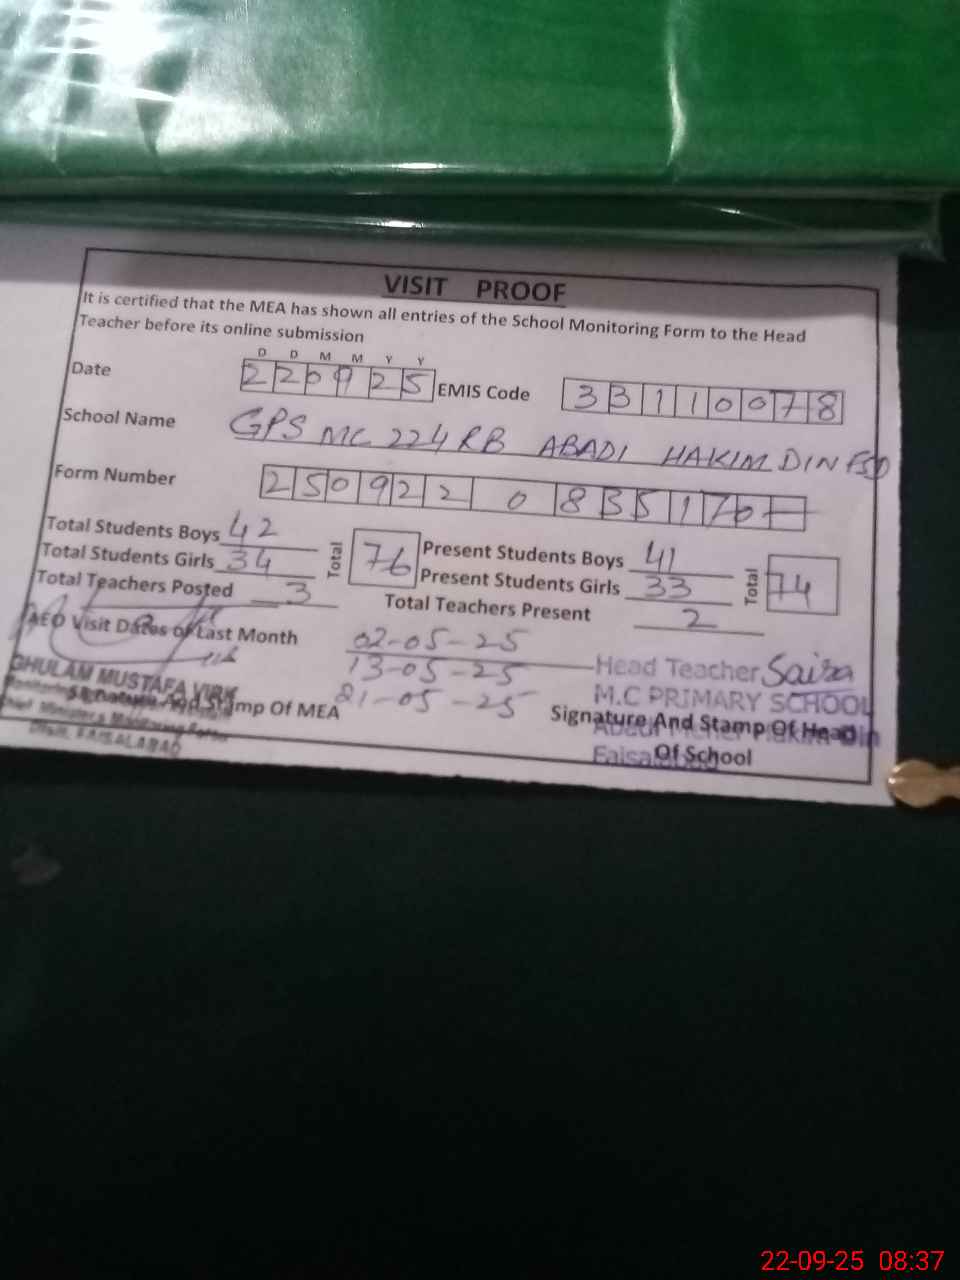 VISIT PROOF
It is certified that the MEA has shown all entries of the School Monitoring Form to the Head
Teacher before its online submission
D D M M Y Y
Date 220925 EMIS Code 33110078
School Name GPS MC 224 RB ABADI HAKIM DIN FSD
Form Number 250922 0 8351
Total Students Boys 42
Total Students Girls 34
Total 76
Total Teachers Posted 3
Present Students Boys 41
Present Students Girls 33
Total 74
Total Teachers Present 2
AEO Visit Dates of Last Month 02-05-25
13-05-25
21-05-25
GHULAM MUSTAFA VIRK
Signature And Stamp Of MEA
FAISALABAD
Head Teacher Saira
M.C PRIMARY SCHOOL
Signature And Stamp Of Head
Of School
Faisalabad
22-09-25 08:37